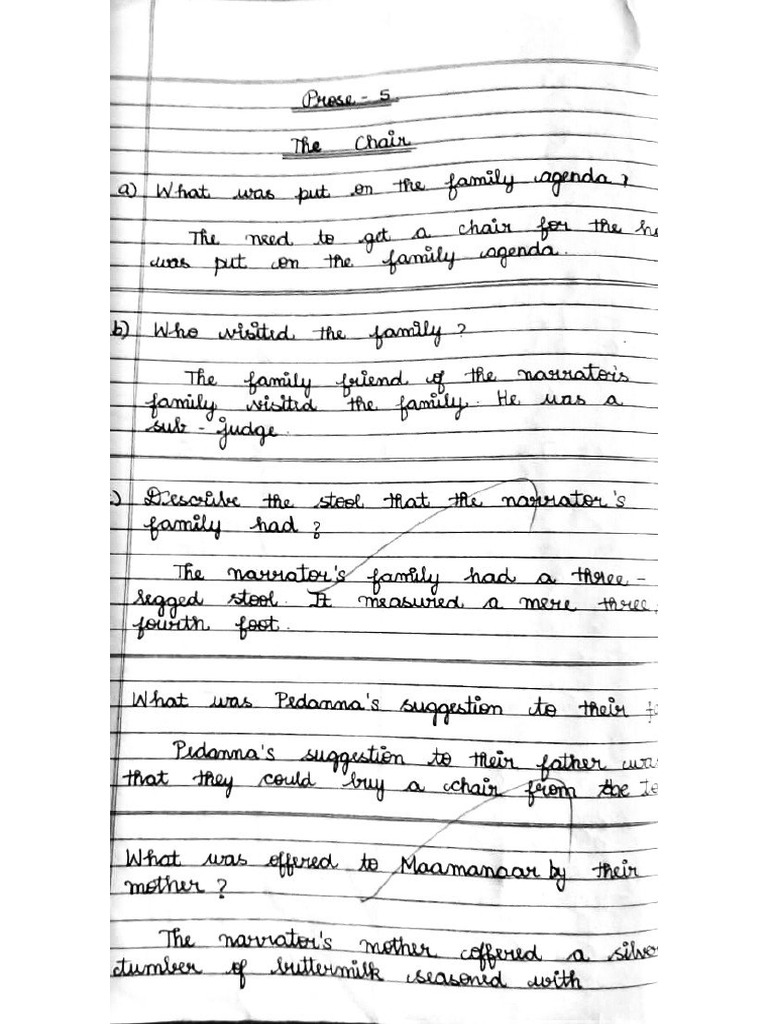 Prose - 5
The Chair
a) What was put on the family agenda?
The need to get a chair for the
was put on the family agenda.
b) Who visited the family?
The family friend of the narrator's
family visited the family. He was a
sub - judge.
) Describe the stool that the narrator's
family had?
The narrator's family had a three -
legged stool. It measured a mere three
fourth foot.
What was Pedanna's suggestion to their
Pedanna's suggestion to their father
that they could buy a chair from the
What was offered to Maamanaar by their
mother?
The narrator's mother offered a
tumber of buttermilk seasoned with